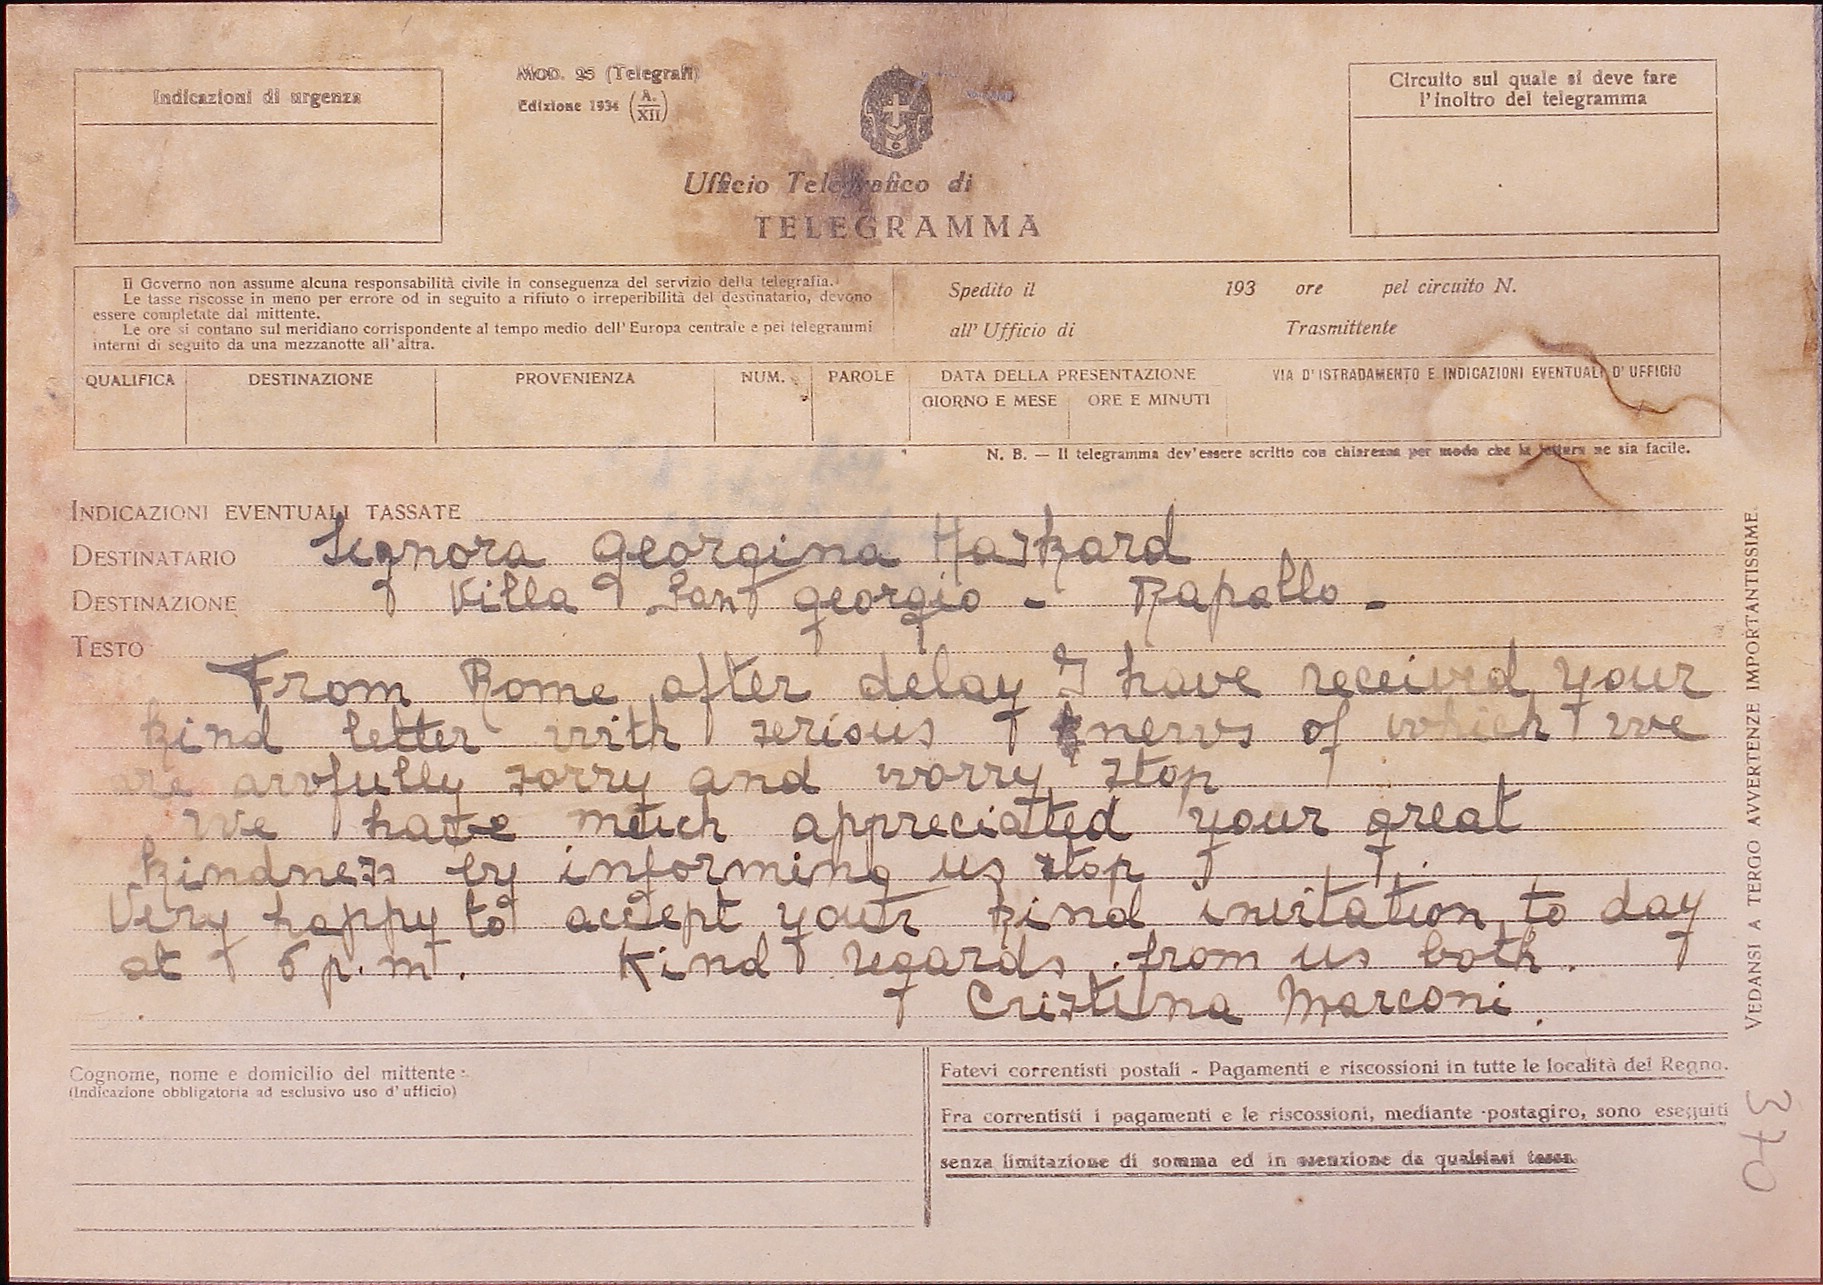 Indicazioni di urgenza
MOD. 25 (Telegrafi)
Edizione 1934 (A./XII)
Circuito sul quale si deve fare
l'inoltro del telegramma
Ufficio Telegrafico di
TELEGRAMMA
Il Governo non assume alcuna responsabilità civile in conseguenza del servizio della telegrafia.
Le tasse riscosse in meno per errore od in seguito a rifiuto o irreperibilità del destinatario, devono
essere completate dal mittente.
Le ore si contano sul meridiano corrispondente al tempo medio dell'Europa centrale e pei telegrammi
interni di seguito da una mezzanotte all'altra.
Spedito il 193 ore pel circuito N.
all'Ufficio di Trasmittente
QUALIFICA DESTINAZIONE PROVENIENZA NUM. PAROLE DATA DELLA PRESENTAZIONE VIA D'ISTRADAMENTO E INDICAZIONI EVENTUALI D'UFFICIO
GIORNO E MESE ORE E MINUTI
N. B. — Il telegramma dev'essere scritto con chiarezza per modo che la lettura ne sia facile.
INDICAZIONI EVENTUALI TASSATE
DESTINATARIO Signora Georgina Haskard
DESTINAZIONE Villa San Georgio - Rapallo -
TESTO
From Rome after delay I have received your
kind letter with serious news of which we
are awfully sorry and worry stop
We have much appreciated your great
kindness by informing us stop
Very happy to accept your kind invitation to day
at 5 p.m. Kind regards from us both.
Cristina Marconi.
VEDANSI A TERGO AVVERTENZE IMPORTANTISSIME.
Cognome, nome e domicilio del mittente:
(Indicazione obbligatoria ad esclusivo uso d'ufficio)
Fatevi correntisti postali - Pagamenti e riscossioni in tutte le località del Regno.
Fra correntisti i pagamenti e le riscossioni, mediante postagiro, sono eseguiti
senza limitazione di somma ed in esenzione da qualsiasi tassa.
370